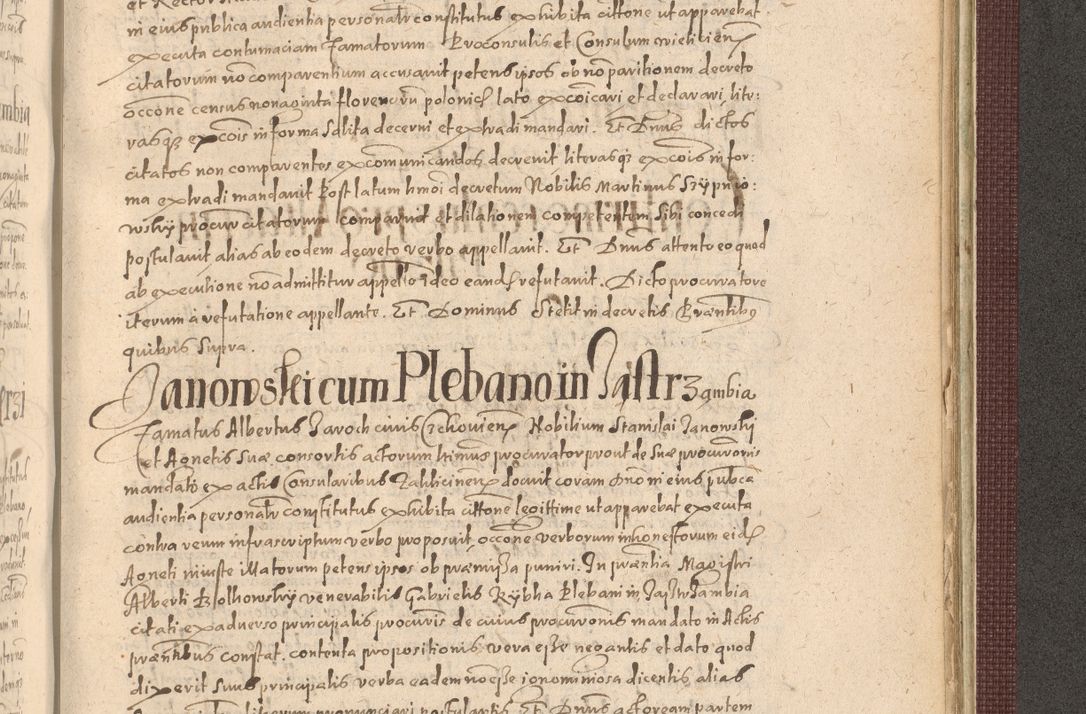 in eius publica audientia personalr constitutus exhibita cittone ut apparebat
executa contumaciam famatorum Proconsulis et Consulum Vieliciens
citatorum nō comparentium accusavit petens ipsos ob nō paritionem decreto
occone census nonaginta florenorū polonicˡ lato excoicari et declarari litr:
rasqȝ excois in forma Solita decerni et extradi mandari. Et Dnus dictos
citatos non comparentes excommunicandos decrevit literasqȝ excois in for:
ma extradi mandavit Post latum hmōi decretum Nobilis Martinus Szypnio:
wsky procur citatorum comparuit et dilationem competentem Sibi concedi
postulavit alias ab eodem decreto verbo appellavit. Et Dnus attento eo quod
ab executione nō admittitur appello ideo eand refutavit. Dicto procuratore
iterum a refutatione appellante. Et Dominus Stetit in decretis Præntibus
quibus Supra.
Janowski cum Plebano in Jastrzambia
Famatus Albertus Jaroch civis Czchoviens Nobilium Stanislai Janowski
et Agnetis Suæ consortis actorum ltimus procurator prout de Suæ procuronis
mandato ex actis Consularibus docuit coram Dno in eius publca
audientia personalr constitutus exhibita cittone legittime ut apparebat executa
contra reum infrascriptum verbo proposuit, occone verborum inhonestorum eid
Agneti iniuste illatorum petens ipsos ob præmissa puniri. In præntia Magistri
Alberti venerabilis Gabrielis Rybka Plebani in Jastrzambia
citati ex adverso principalis procuris de cuius procuronis mandato in Actis
præntibus constat. contenta propositionis vera esse negantis et dato quod
dixerit Suus principalis verba eadem nō esse ignominiosa dicentis, alias
pronunciari postulantis Et Dnus actoream partem